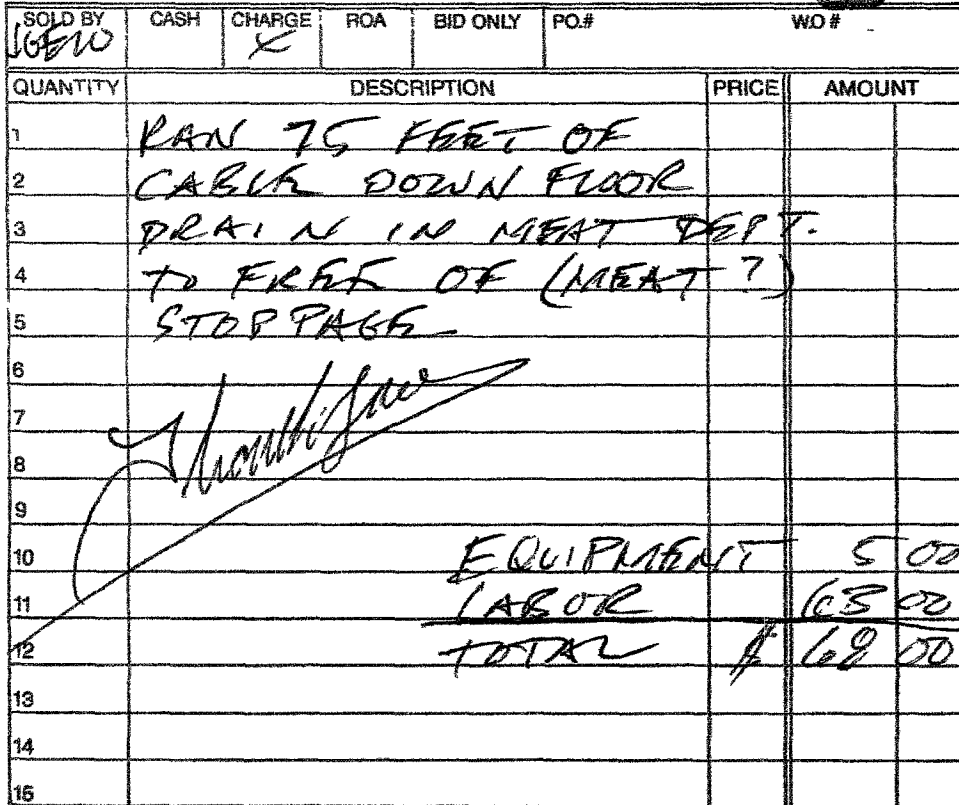 SOLD BY CASH CHARGE ROA BID ONLY PO.# W.O #
X
QUANTITY DESCRIPTION PRICE AMOUNT
1 RAN 75 FEET OF
2 CABLE DOWN FLOOR
3 DRAIN IN MEAT DEPT.
4 TO FREE OF (MEAT?)
5 STOPPAGE
6
7
8
9
10 EQUIPMENT 5 00
11 LABOR 63 00
12 TOTAL $ 68 00
13
14
15